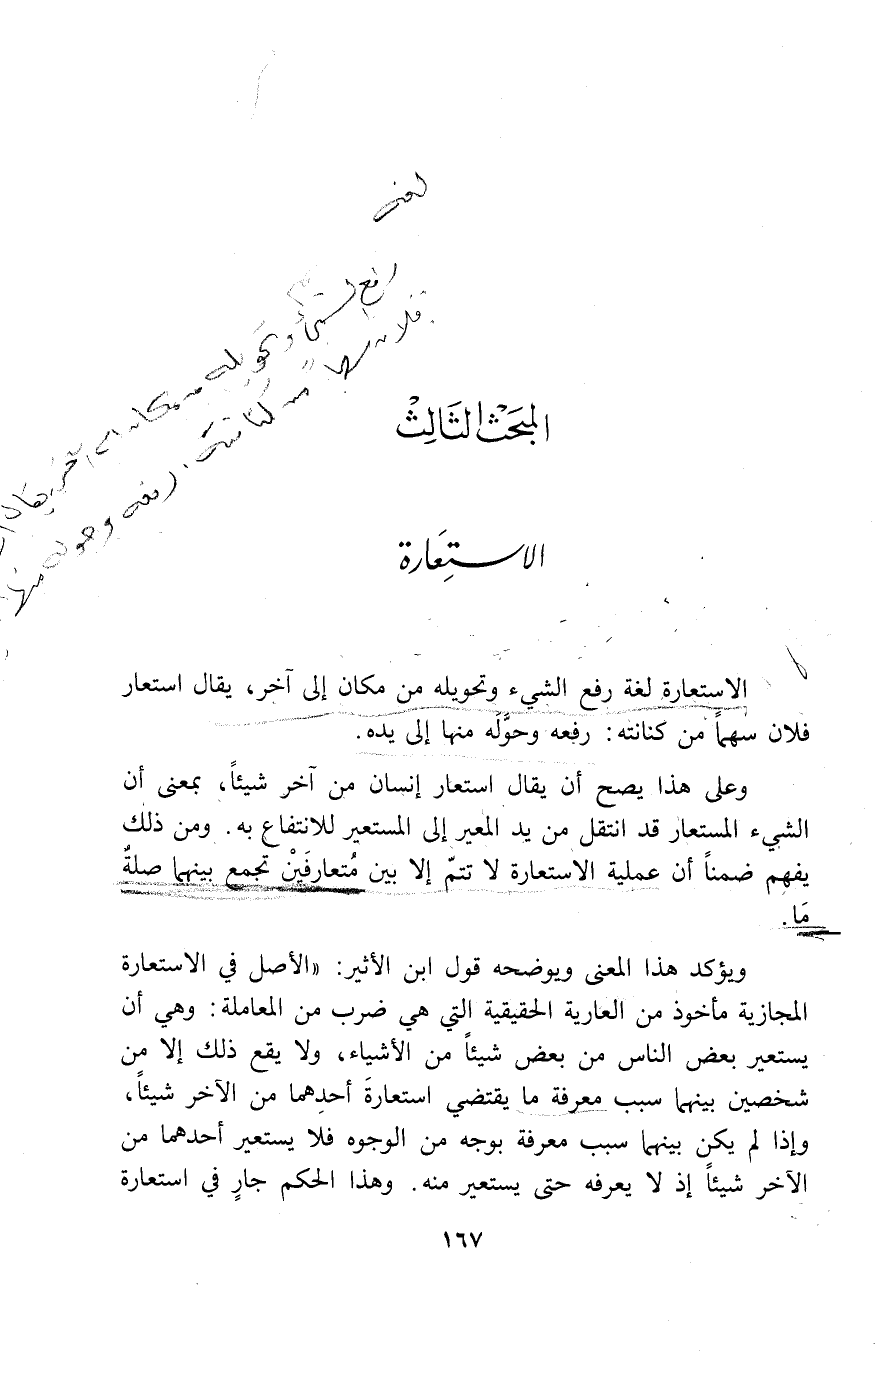 لغة
رفع الشيء وتحويله من مكان إلى آخر يقال
فلان سهماً من كنانته رفعه وحوله منها
المبحَث الثَالِث
الاستِعَارة
الاستعارة لغة رفع الشيء وتحويله من مكان إلى آخر، يقال استعار
فلان سهماً من كنانته: رفعه وحوَّلَه منها إلى يده.
وعلى هذا يصح أن يقال استعار إنسان من آخر شيئاً، بمعنى أن
الشيء المستعار قد انتقل من يد المعير إلى المستعير للانتفاع به. ومن ذلك
يفهم ضمناً أن عملية الاستعارة لا تتمّ إلا بين مُتعارفَيْن تجمع بينهما صلةٌ
مَا.
ويؤكد هذا المعنى ويوضحه قول ابن الأثير: «الأصل في الاستعارة
المجازية مأخوذ من العارية الحقيقية التي هي ضرب من المعاملة: وهي أن
يستعير بعض الناس من بعض شيئاً من الأشياء، ولا يقع ذلك إلا من
شخصين بينهما سبب معرفة ما يقتضي استعارةَ أحدِهما من الآخر شيئاً،
وإذا لم يكن بينهما سبب معرفة بوجه من الوجوه فلا يستعير أحدهما من
الآخر شيئاً إذ لا يعرفه حتى يستعير منه. وهذا الحكم جارٍ في استعارة
١٦٧